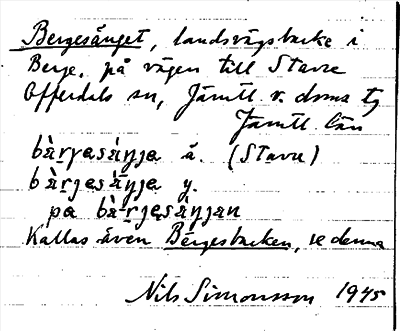 Bergesänget, landsvägsbacke i
Berge, på vägen till Stavre
Offerdals sn, Jämtl. v. doms tg
Jämtl. län
bàryasáŋja ä. (Stavre)
bàrjesáŋja y.
pa bàrjesáŋjan
Kallas även Bergesbacken, se denna
Nils Simonsson 1945